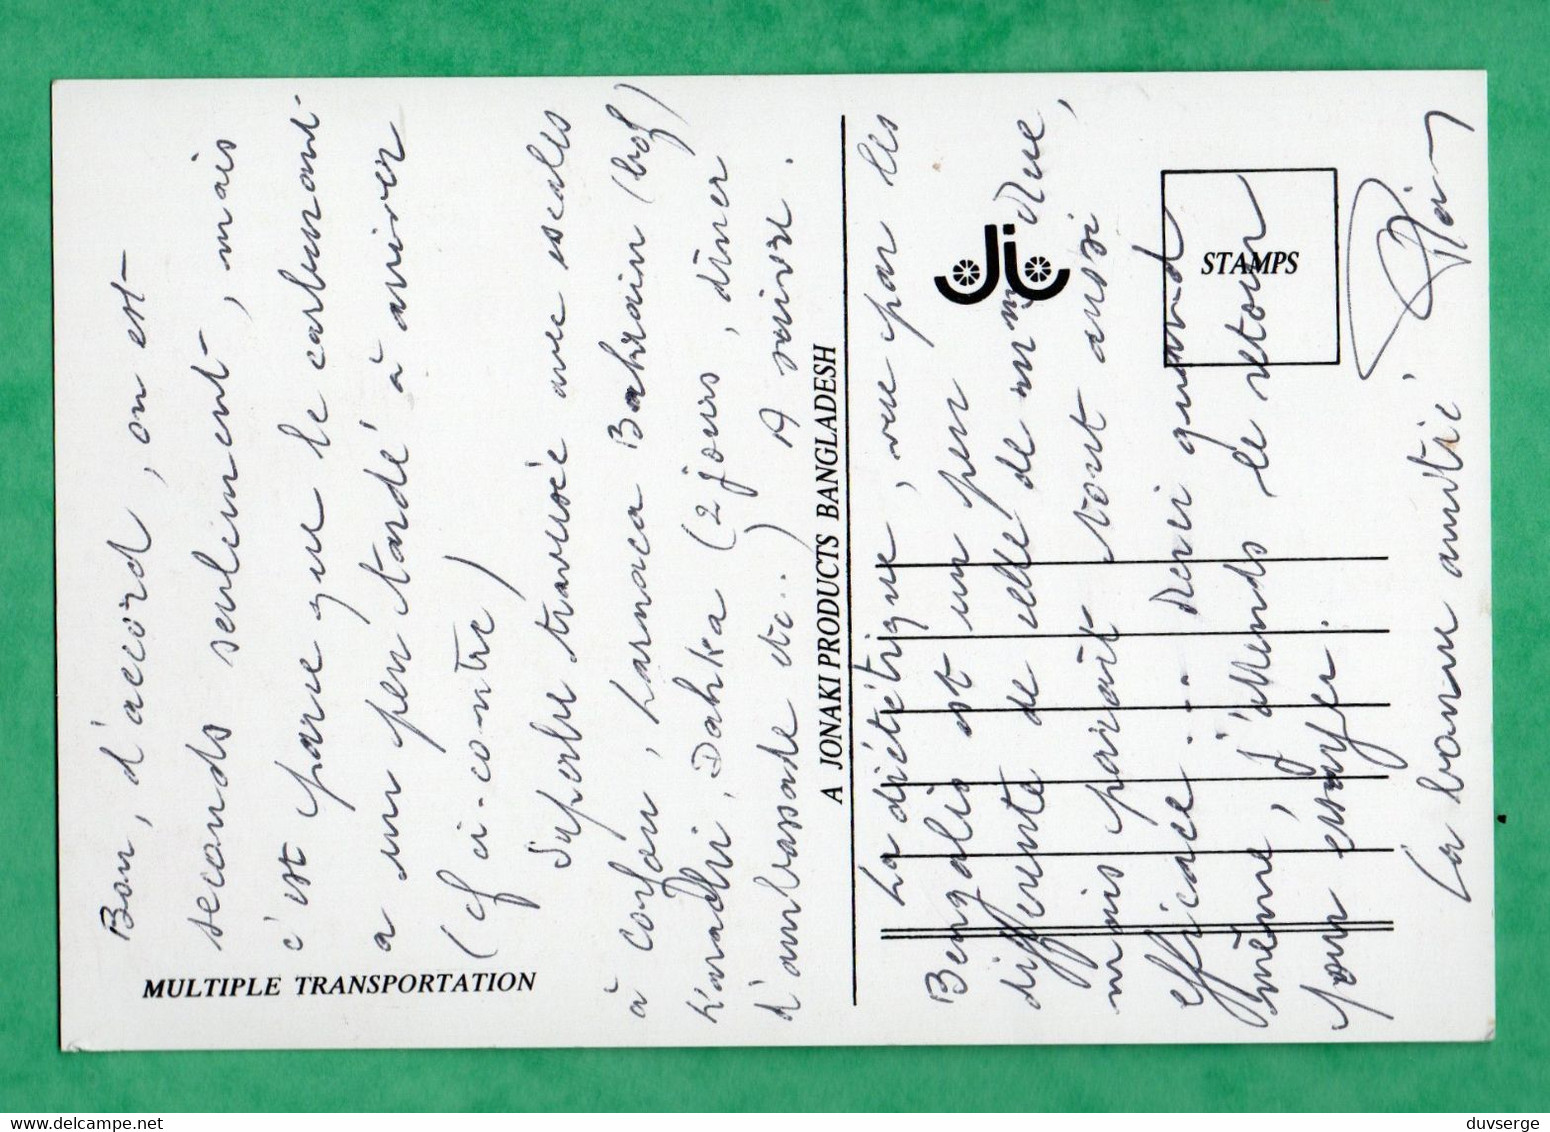 Bon, d'accord, on est
seconds seulement, mais
c'est parce que le carburant
a un peu tardé à arriver
(cf ci-contre)
Superbe traversée avec escales
à Corfou, Larnaca Bahrain (bof)
Karachi, Dahka (2 jours, dîner
d'ambassade etc..) A suivre.
MULTIPLE TRANSPORTATION
A JONAKI PRODUCTS BANGLADESH
La diététique, vue par les
Bengalis est un peu
différente de celle de
mais paraît tout aussi
efficace... Merci quand
même, j'attends le retour
pour essayer.
La bonne amitié
STAMPS
www.delcampe.net
duvserge